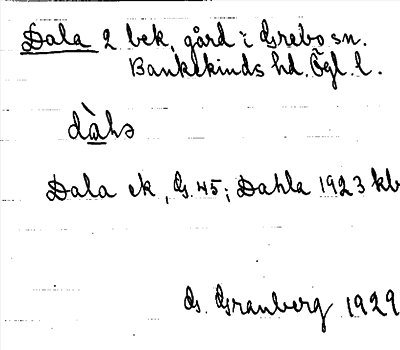 Dala 2 bek. gård i Grebo sn.
Bankekinds hd. Ögl. l.
dàlə
Dala ek, G. 45; Dahla 1923 kb
G. Granberg 1929